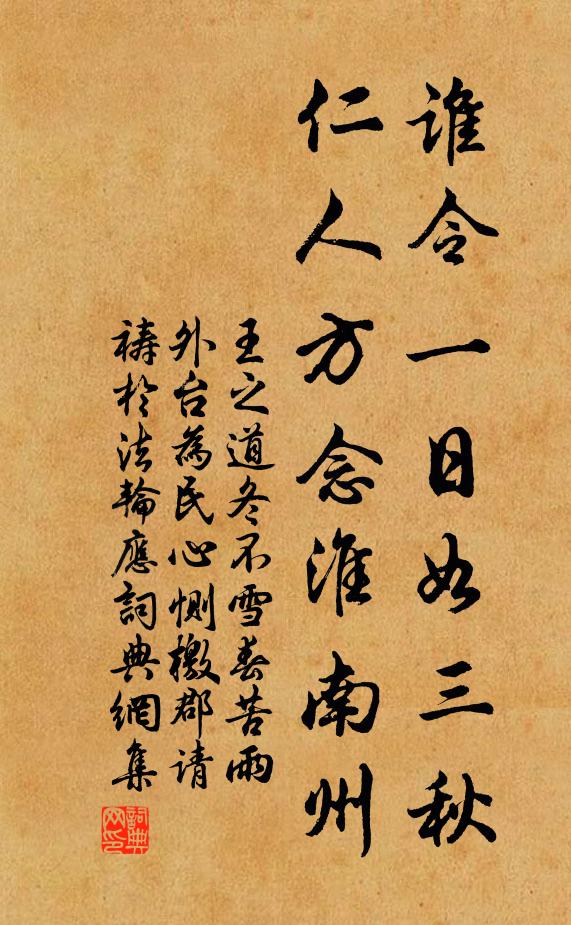 谁令一日如三秋
仁人方念淮南州
王之道冬不雪春苦雨
外台為民心惻檄郡请
祷於法輪應詞典網集
詞典
网印